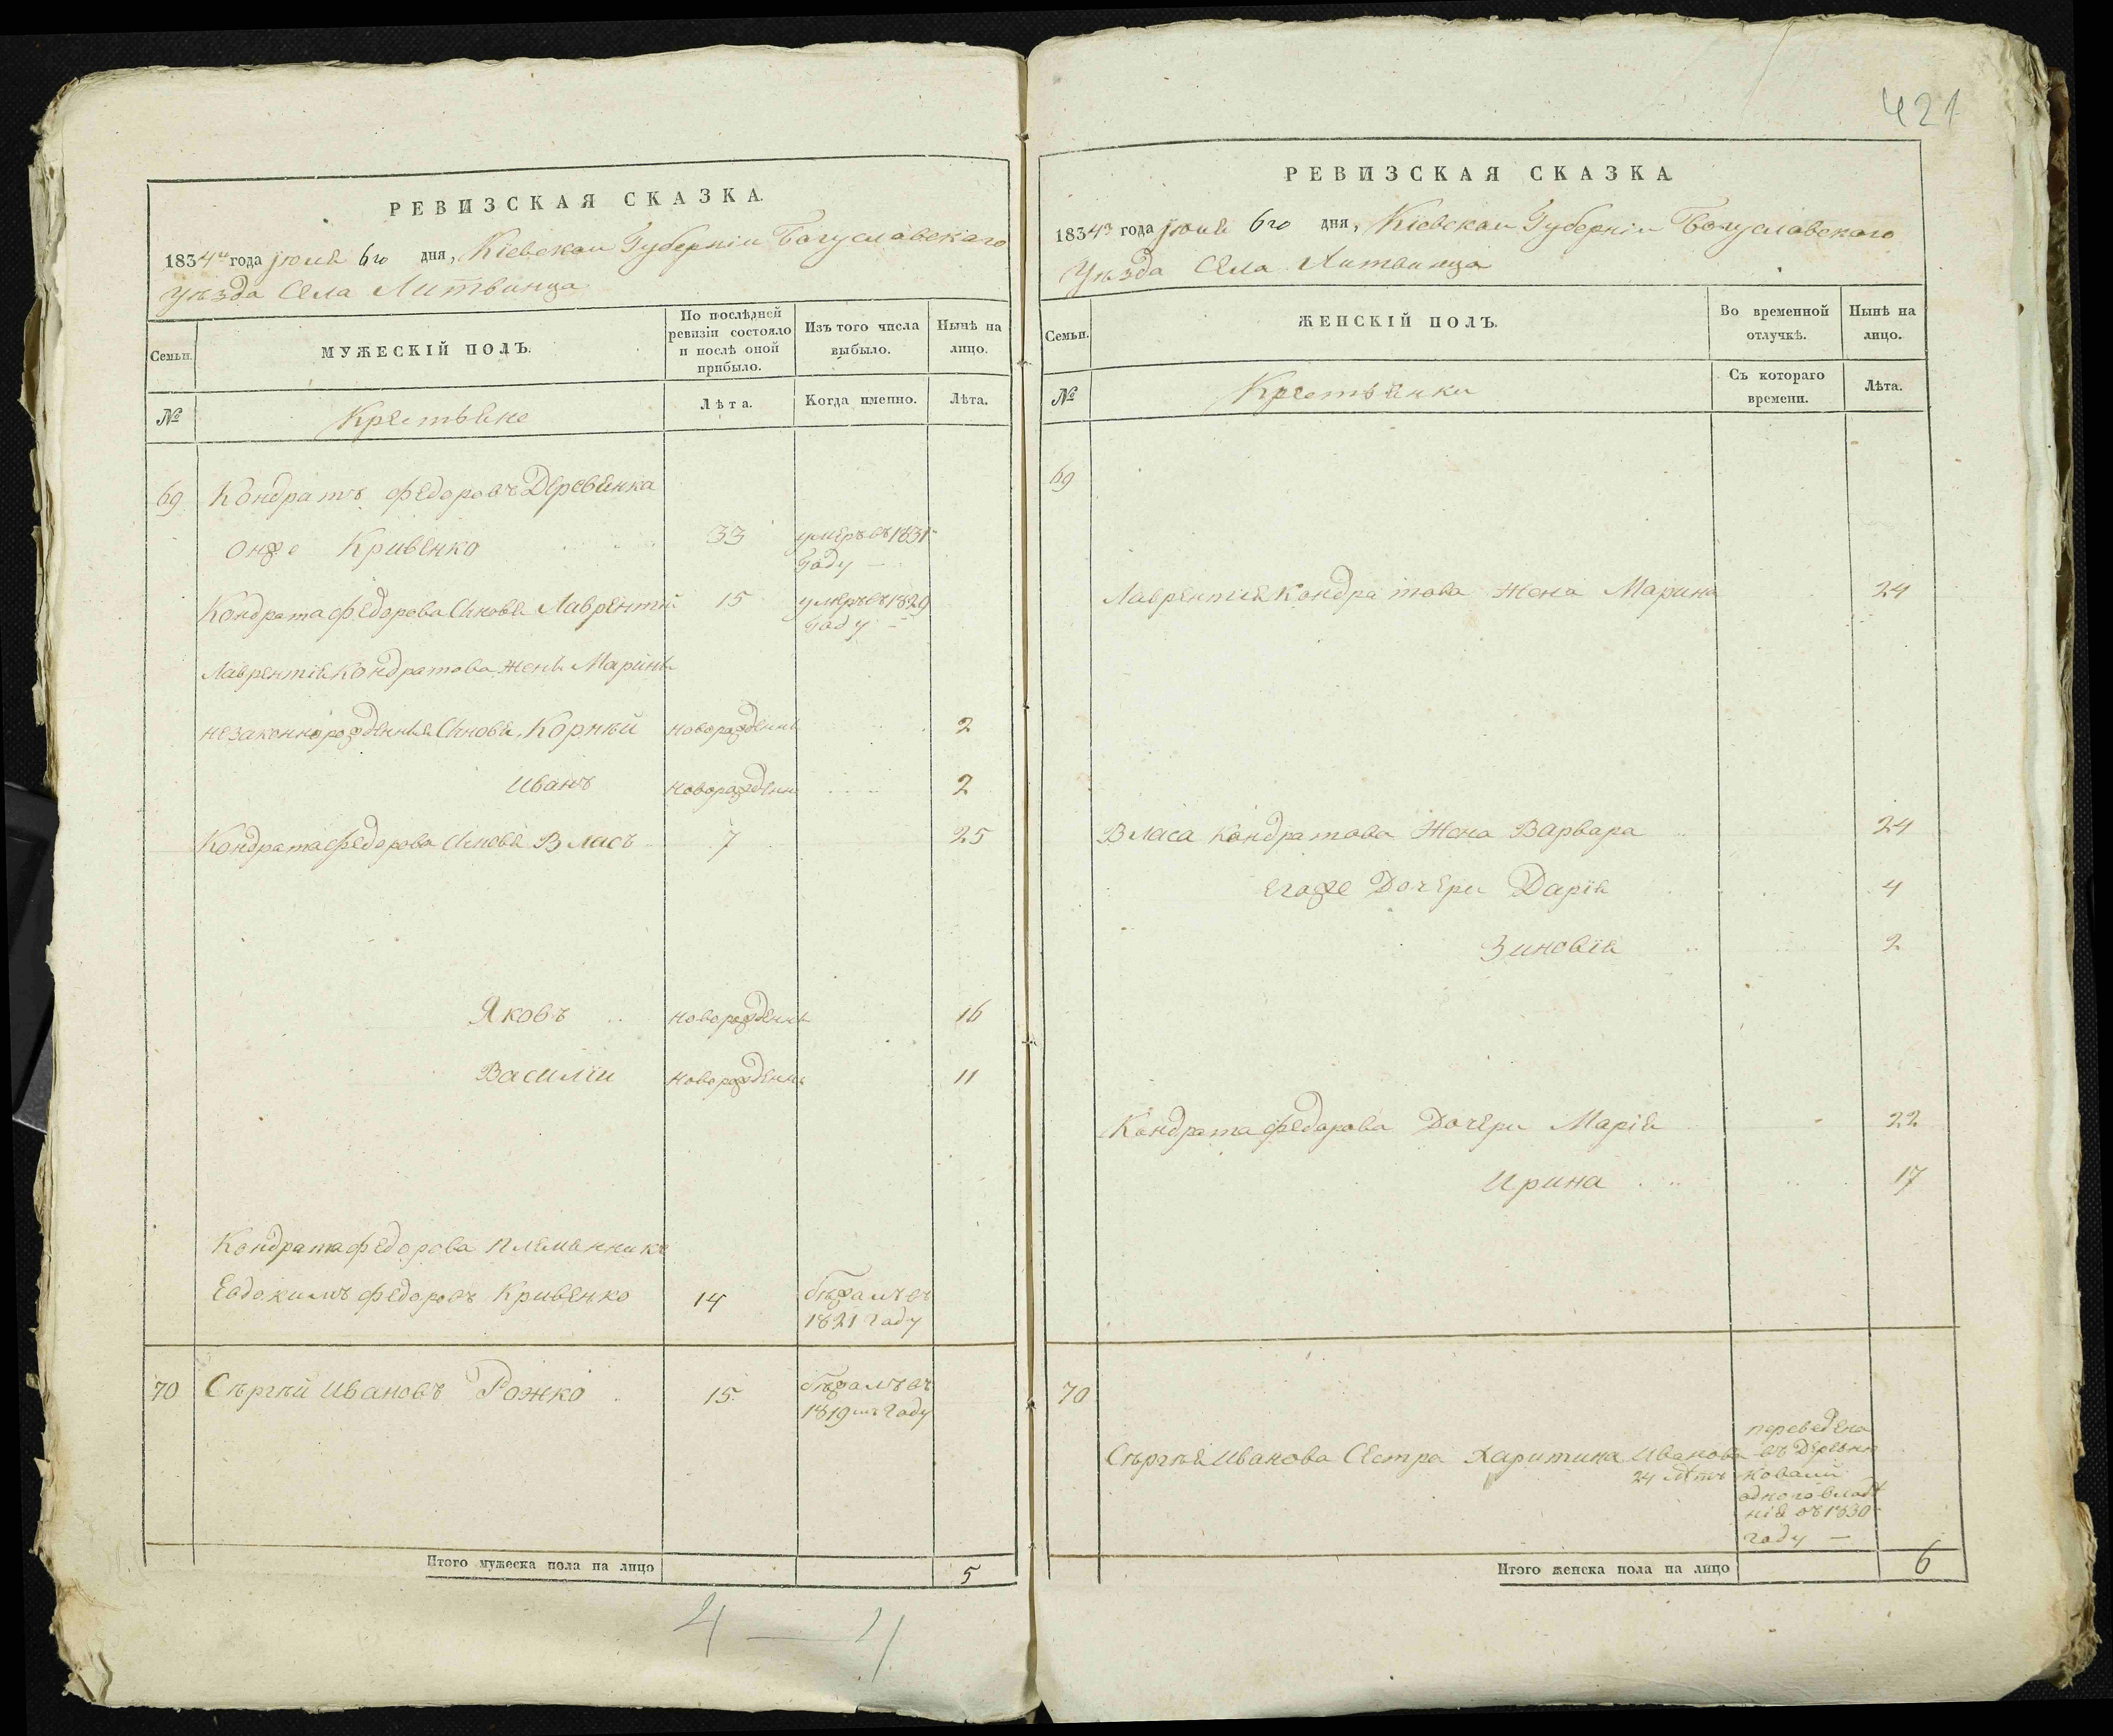 421
РЕВИЗСКАЯ СКАЗКА.
1834го года июня 6го дня, Кіевской Губерніи Богуславскаго
Уѣзда Села Литвинца
Семьи.
МУЖЕСКІЙ ПОЛЪ.
По послѣдней ревизіи состояло и послѣ оной прибыло.
Изъ того числа выбыло.
Нынѣ на лицо.
№
Крестьяне
Лѣта.
Когда именно.
Лѣта.
69 Кондратъ Федоровъ Деревянка
онже Кривенко 33 умеръ въ 1831
году
Кондрата Федорова Сыновя Лаврентій 15 умеръ въ 1829
году
Лаврентія Кондратова жены Марины
незаконнорожденныя Сыновя, Корнѣй новорожденны 2
Иванъ новорожденн 2
Кондрата Федорова Сыновя Власъ 7 25
Яковъ новорожденны 16
Василій новорожденны 11
Кондрата Федорова племянникъ
Евдокимъ Федоровъ Кривенко 14 бѣжалъ въ
1821 году
70 Сѣргѣй Ивановъ Рожко 15 бѣжалъ въ
1819мъ году
Итого мужеска пола на лицо 5
4 — 4
РЕВИЗСКАЯ СКАЗКА
1834го года июня 6го дня, Кіевской Губерніи Богуславского
Уѣзда Села Литвинца
Семьи.
ЖЕНСКІЙ ПОЛЪ.
Во временной отлучкѣ.
Нынѣ на лицо.
№
Крестьянки
Съ котораго времени.
Лѣта.
69
Лаврентія Кондратова Жена Марина 24
Власа Кондратова Жена Варвара 24
егоже Дочери Дарія 4
Зиновія 2
Кондрата Федорова Дочери Марія 22
Ирина 17
70
Сѣргѣя Иванова Сестра Харитина Иванова
24 лѣтъ
переведена
въ Деревню
Ковали
одного владѣ
нія въ 1830
году
Итого женска пола на лицо 6